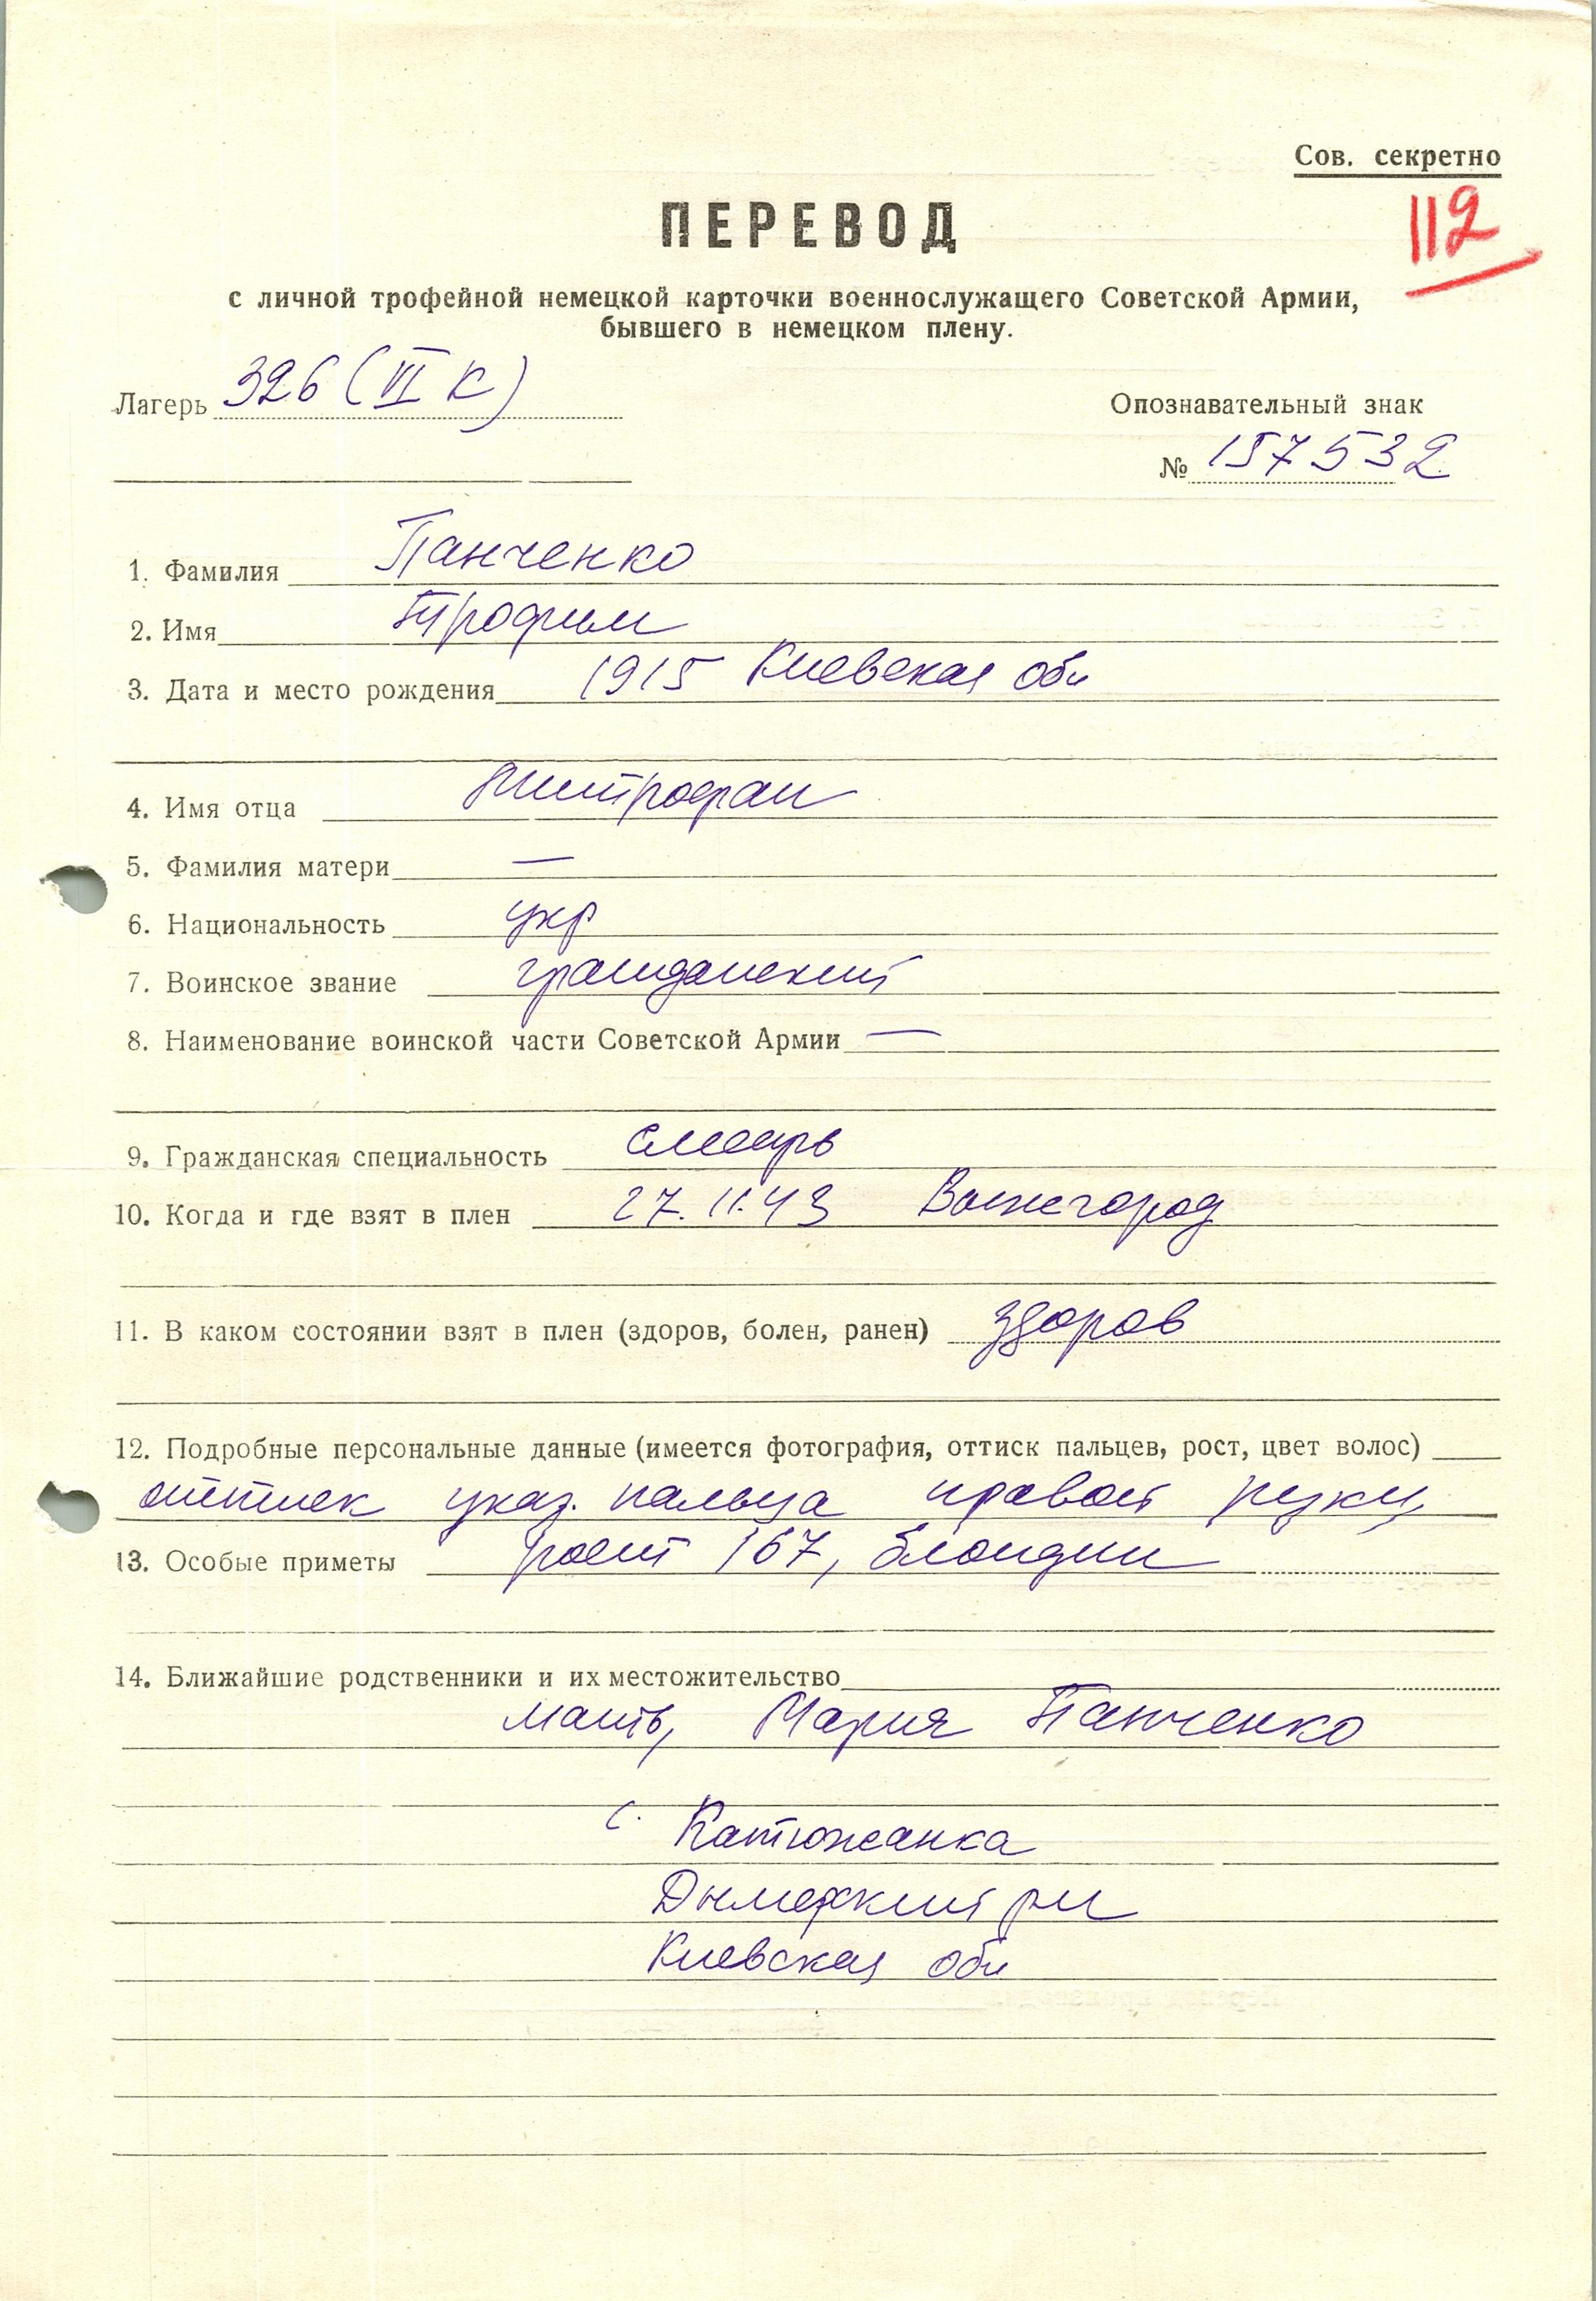 Сов. секретно
112
ПЕРЕВОД
с личной трофейной немецкой карточки военнослужащего Советской Армии,
бывшего в немецком плену.
Лагерь 326 (VI К)
Опознавательный знак
№ 157532
1. Фамилия Панченко
2. Имя Трофим
3. Дата и место рождения 1915 Киевская обл
4. Имя отца Митрофан
5. Фамилия матери —
6. Национальность укр
7. Воинское звание гражданский
8. Наименование воинской части Советской Армии —
9. Гражданская специальность слесарь
10. Когда и где взят в плен 27.11.43
11. В каком состоянии взят в плен (здоров, болен, ранен) здоров
12. Подробные персональные данные (имеется фотография, оттиск пальцев, рост, цвет волос)
оттиск указ. пальца правой руки,
13. Особые приметы рост 167, блондин
14. Ближайшие родственники и их местожительство
мать, Мария Панченко
с. Катюжанка
Дымерский р-н
Киевская обл